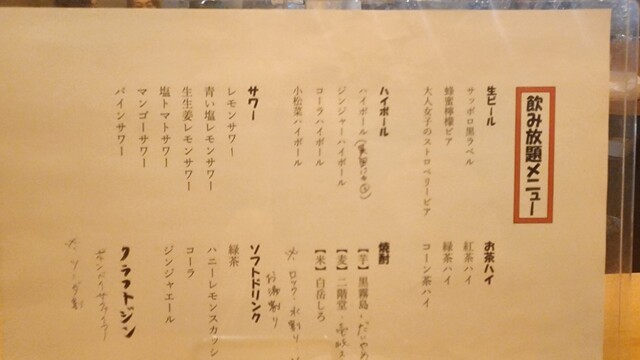 飲み放題メニュー
生ビール
サッポロ黒ラベル
蜂蜜檸檬ビア
大人女子のストロベリービア
ハイボール
ハイボール
ジンジャーハイボール
コーラハイボール
小松菜ハイボール
サワー
レモンサワー
青い塩レモンサワー
生生姜レモンサワー
塩トマトサワー
マンゴーサワー
パインサワー
お茶ハイ
紅茶ハイ
緑茶ハイ
コーン茶ハイ
焼酎
【芋】黒霧島・だいやめ
【麦】二階堂・壱岐
【米】白岳しろ
※ロック・水割り
お湯割り
ソフトドリンク
緑茶
ハニーレモンスカッシ
コーラ
ジンジャエール
クラフトジン
※ソーダ割